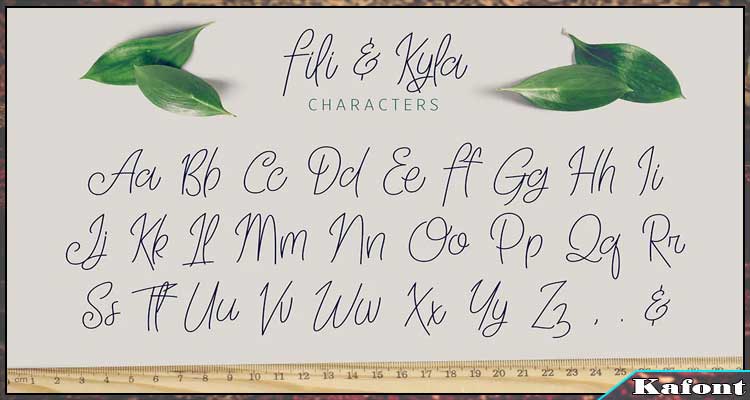 fili & Kyla
CHARACTERS
Aa Bb Cc Dd Ee Ff Gg Hh Ii
Jj Kk Ll Mm Nn Oo Pp Qq Rr
Ss Tt Uu Vv Ww Xx Yy Zz , . &
cm 1 2 3 4 5 6 7 8 9 10 11 12 13 14 15 16 17 18 19 20 21 22 23 24 25
Kafont